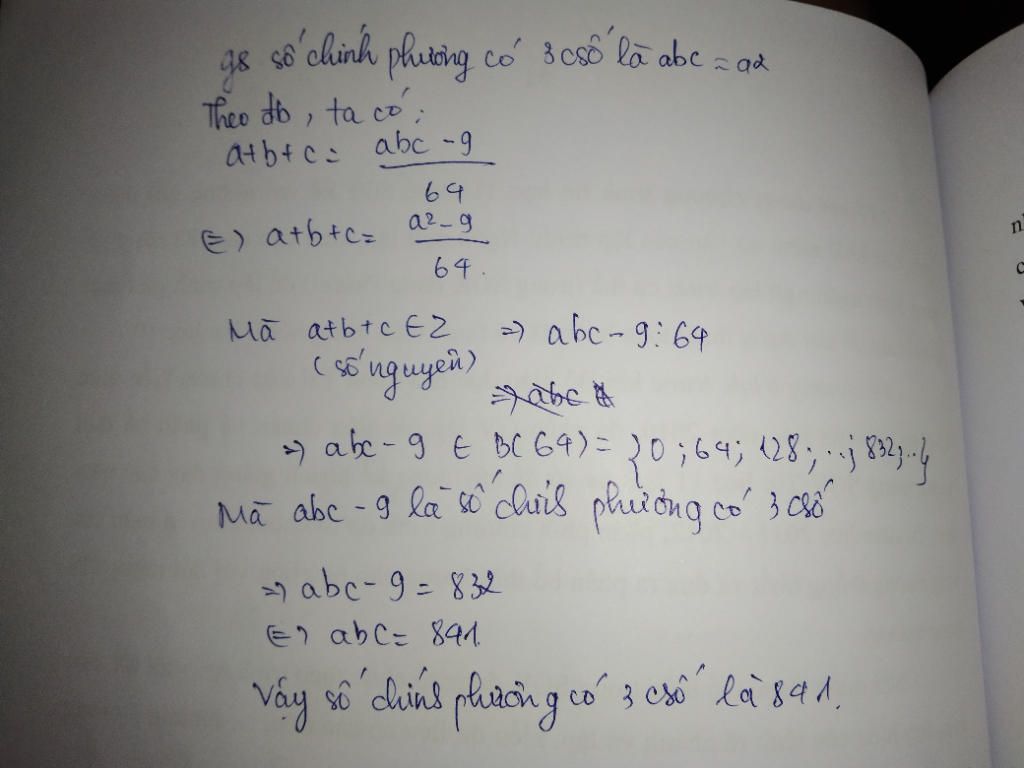 gs số chính phương có 3 csố là abc = a2
Theo đb, ta có:
a+b+c = abc - 9
64
(=) a+b+c = a2 - 9
64.
Mà a+b+c ∈ Z => abc - 9 ⋮ 64
(số nguyên)
=> abc
=> abc - 9 ∈ B(64) = {0; 64; 128; ...; 832; ..}
Mà abc - 9 là số chính phương có 3 csố
=> abc - 9 = 832
(=) abc = 841.
Vậy số chính phương có 3 csố là 841.